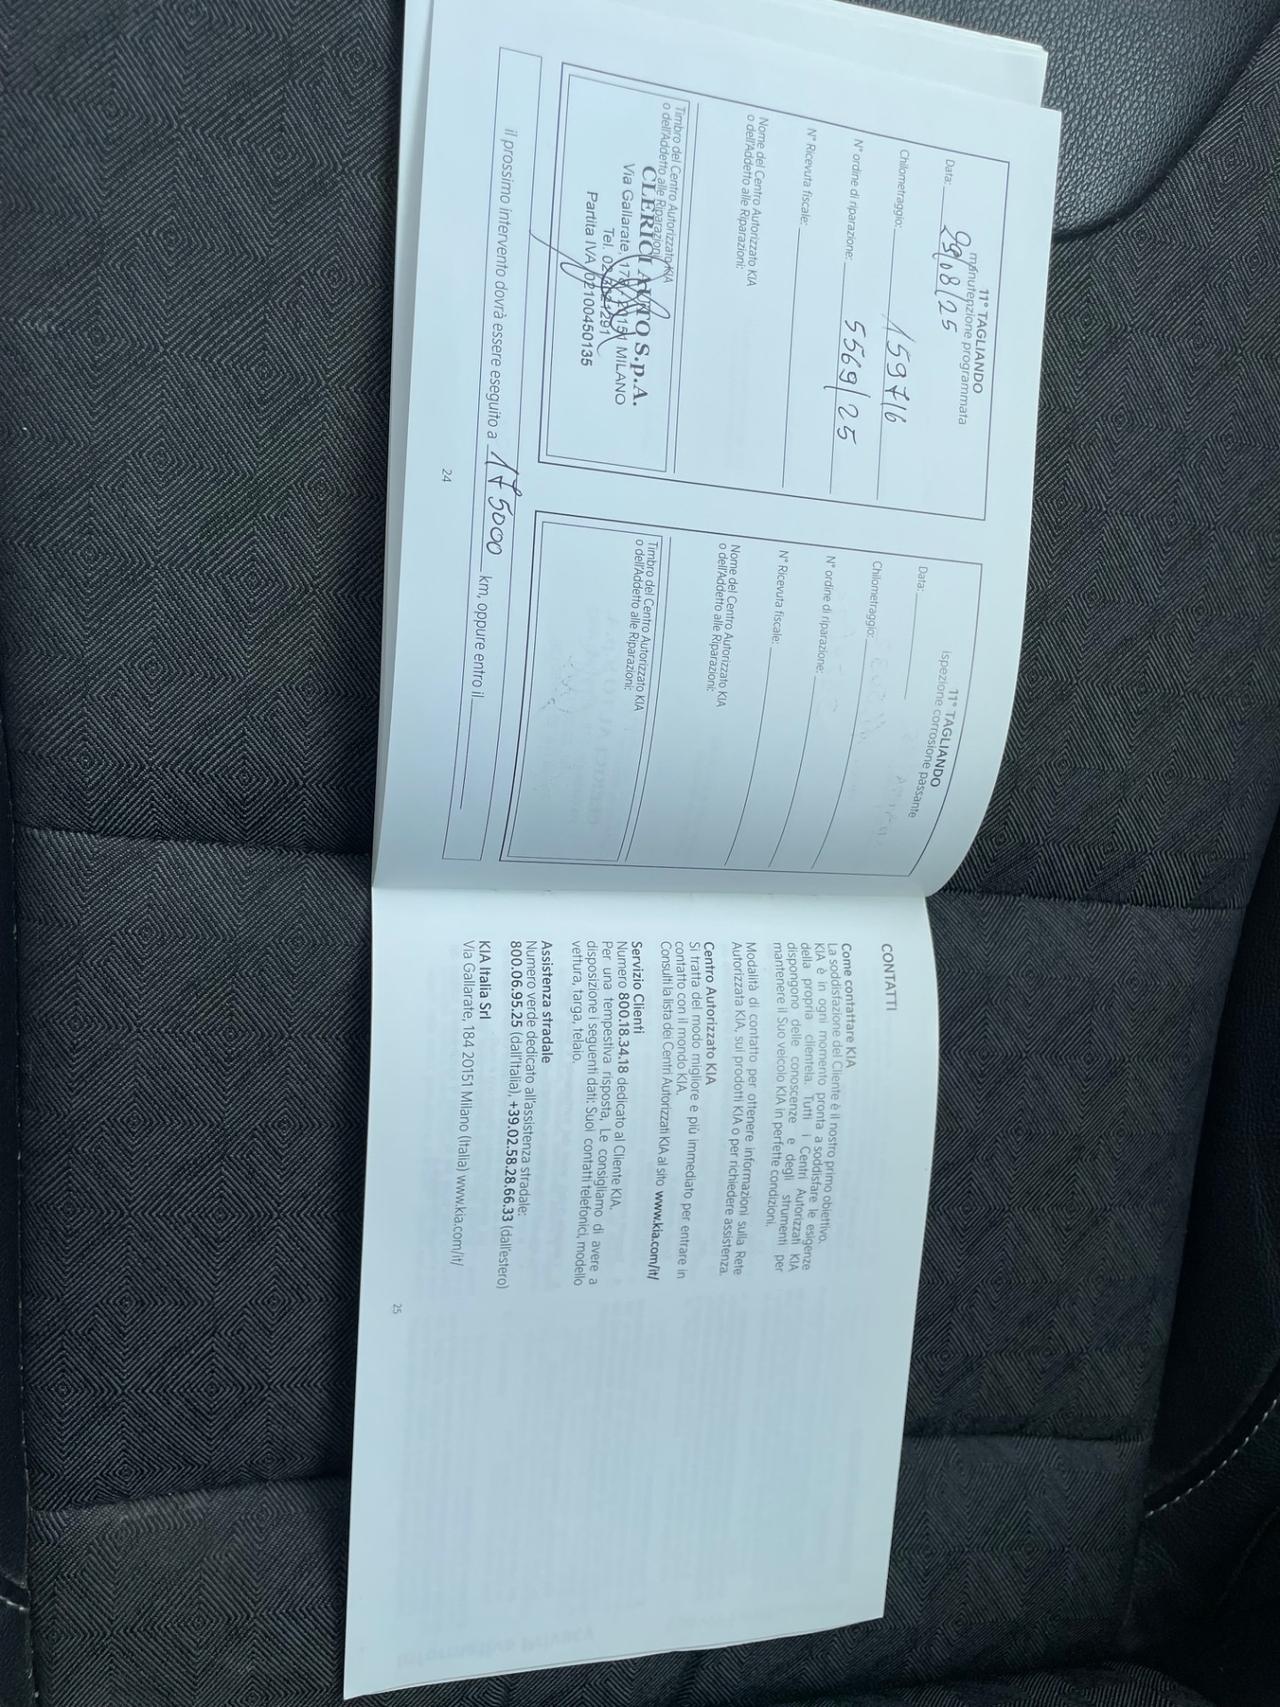 11° TAGLIANDO
manutenzione programmata
Data: 29/08/25
Chilometraggio: 159716
N° ordine di riparazione: 5569/25
N° Ricevuta fiscale:
Nome del Centro Autorizzato KIA
o dell'Addetto alle Riparazioni:
Timbro del Centro Autorizzato KIA
o dell'Addetto alle Riparazioni:
CLERICI AUTO S.p.A.
Via Gallarate, 20151 MILANO
Tel.
Partita IVA 02100450135
11° TAGLIANDO
ispezione corrosione passante
Data:
Chilometraggio:
N° ordine di riparazione:
N° Ricevuta fiscale:
Nome del Centro Autorizzato KIA
o dell'Addetto alle Riparazioni:
Timbro del Centro Autorizzato KIA
o dell'Addetto alle Riparazioni:
il prossimo intervento dovrà essere eseguito a 175000 km, oppure entro il
24
CONTATTI
Come contattare KIA
La soddisfazione del Cliente è il nostro primo obiettivo.
KIA è in ogni momento pronta a soddisfare le esigenze
della propria clientela. Tutti i Centri Autorizzati KIA
dispongono delle conoscenze e degli strumenti per
mantenere il Suo veicolo KIA in perfette condizioni.
Modalità di contatto per ottenere informazioni sulla Rete
Autorizzata KIA, sui prodotti KIA o per richiedere assistenza.
Centro Autorizzato KIA
Si tratta del modo migliore e più immediato per entrare in
contatto con il mondo KIA.
Consulti la lista dei Centri Autorizzati KIA al sito www.kia.com/it/
Servizio Clienti
Numero 800.18.34.18 dedicato al Cliente KIA.
Per una tempestiva risposta, Le consigliamo di avere a
disposizione i seguenti dati: Suoi contatti telefonici, modello
vettura, targa, telaio.
Assistenza stradale
Numero verde dedicato all'assistenza stradale:
800.06.95.25 (dall'Italia), +39.02.58.28.66.33 (dall'estero)
KIA Italia Srl
Via Gallarate, 184 20151 Milano (Italia) www.kia.com/it/
25